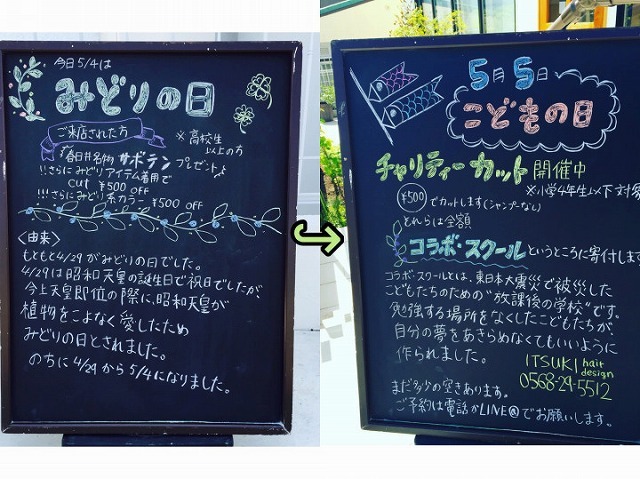 今日5/4は
みどりの日
ご来店された方
※高校生
以上の方
春日井名物 サボテン プレゼント♪
!!さらにみどりアイテム着用で
cut ¥500 OFF
!!!さらにみどり系カラー ¥500 OFF
〈由来〉
もともと4/29がみどりの日でした。
4/29は昭和天皇の誕生日で祝日でしたが、
今上天皇即位の際に、昭和天皇が
植物をこよなく愛したため
みどりの日とされました。
のちに4/29から5/4になりました。
5月5日
こどもの日
チャリティーカット開催中
※小学4年生以下対象
¥500でカットします(シャンプーなし)
それらは全額
コラボ・スクールというところに寄付します
コラボ・スクールとは、東日本大震災で被災した
こどもたちのための"放課後の学校"です。
勉強する場所をなくしたこどもたちが、
自分の夢をあきらめなくてもいいように
作られました。
ITSUKI hair design
0568-29-5512
まだ多少の空きあります。
ご予約は電話かLINE@でお願いします。